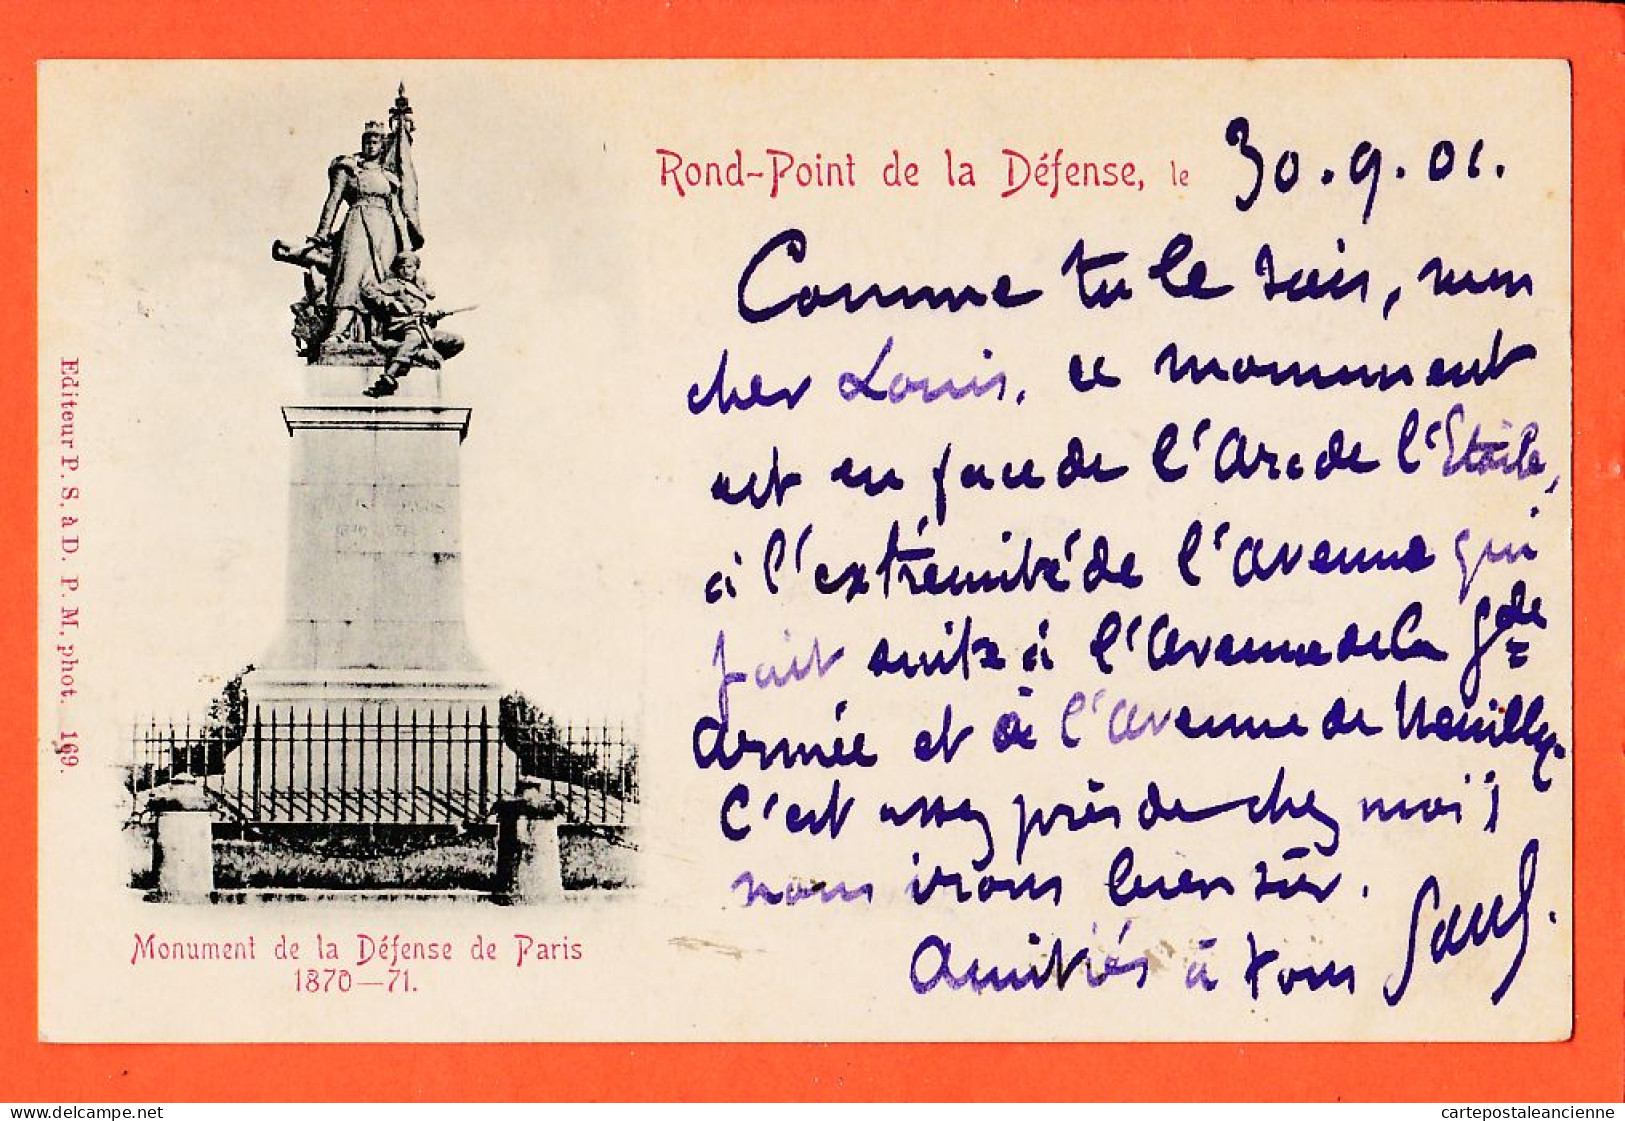 Rond-Point de la Défense, le 30.9.01.
Comme tu le sais, mon
cher Louis, ce monument
est en face de l'Arc de l'Etoile,
à l'extrémité de l'avenue qui
fait suite à l'avenue de la Gde
Armée et à l'avenue de Neuilly.
C'est assez près de chez moi ;
nous irons bien sûr.
Amitiés à tous
Editeur P. S. à D. P. M. phot. 169.
Monument de la Défense de Paris
1870—71.
Delcampe.net
cartepostaleancienne